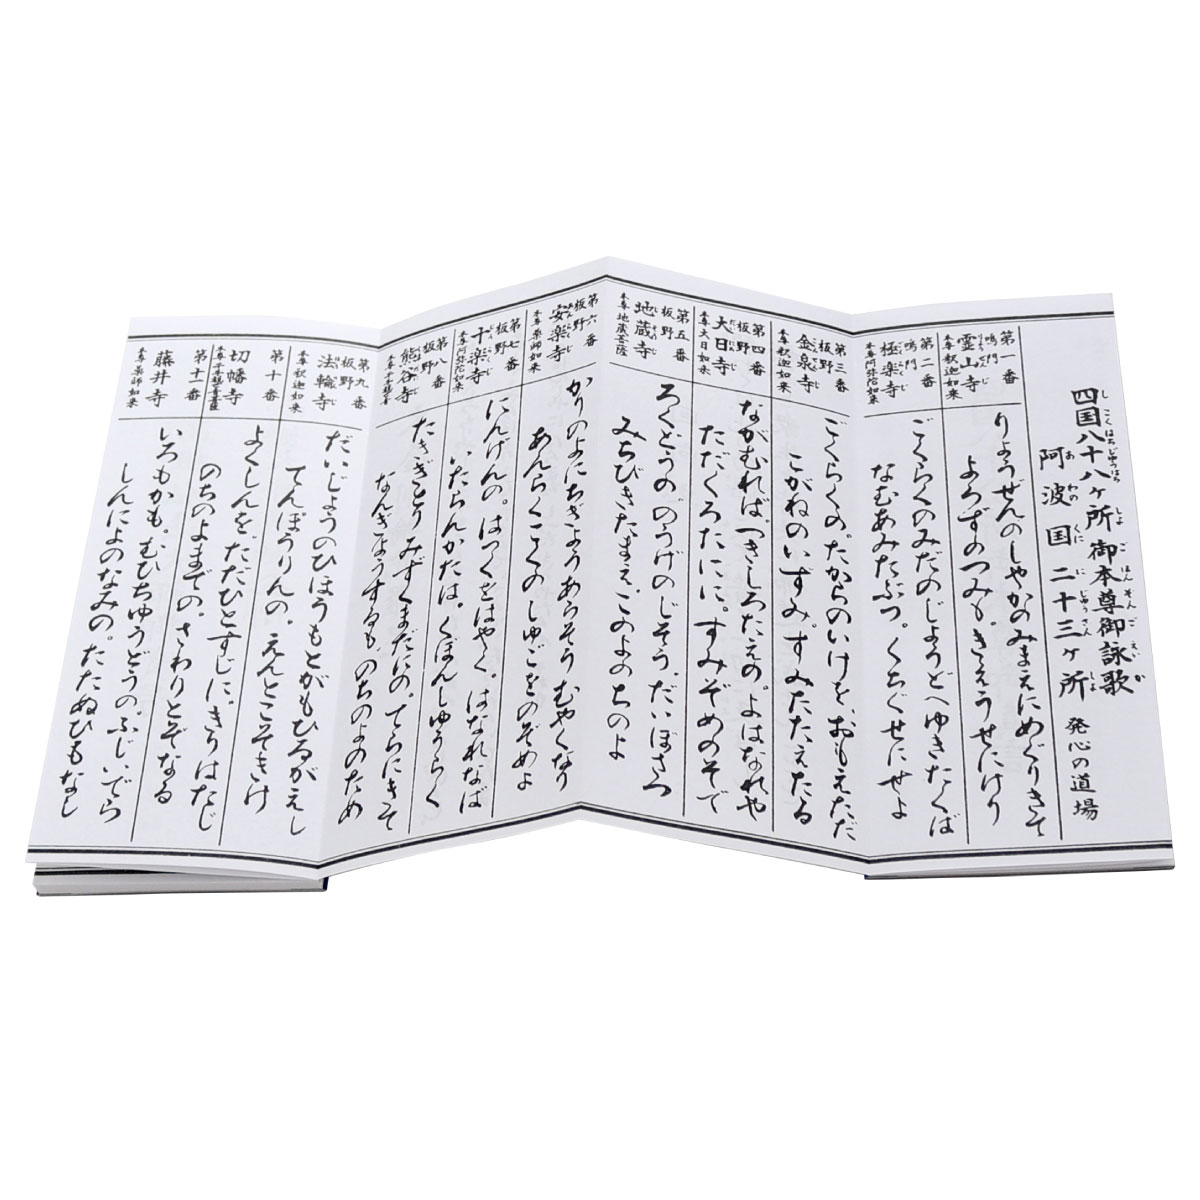 四国八十八ヶ所御本尊御詠歌
阿波国二十三ヶ所 発心の道場
第一番
鳴門
霊山寺
本尊釈迦如来
りょうぜんのしゃかのみまえにめぐりきて
よろずのつみも。きえうせにけり
第二番
鳴門
極楽寺
本尊阿弥陀如来
ごくらくのみだのじょうどへゆきたくば
なむあみだぶつ。くちぐせにせよ
第三番
板野
金泉寺
本尊釈迦如来
ごくらくの。たからのいけを、おもえただ
こがねのいずみ。すみたたえたる
第四番
板野
大日寺
本尊大日如来
ながむれば。つきしろたえの。よはなれや
ただくろたにに。すみぞめのそで
第五番
板野
地蔵寺
本尊地蔵菩薩
ろくどうののうげのじぞう。だいぼさつ
みちびきたまえ、このよのちのよ
第六番
板野
安楽寺
本尊薬師如来
かりのよにちぎょうあらそう むやくなり
あんらくこくのしゅごをのぞめよ
第七番
板野
十楽寺
本尊阿弥陀如来
にんげんの。はっくをはやく。はなれなば
いたらんかたは。くぼんじゅうらく
第八番
板野
熊谷寺
本尊千手観音
たきぎとり みずくまだにの。てらにきて
なんぎょうするも。のちのよのため
第九番
板野
法輪寺
本尊釈迦如来
だいじょうのひほうもとがもひるがえし
てんぽうりんの。えんとこそきけ
第十番
切幡寺
本尊千手観音菩薩
よくしんを。ただひとすじに。きりはたじ
のちのよまでの。さわりとぞなる
第十一番
藤井寺
本尊薬師如来
いろもかも。むひちゅうどうの。ふじいでら
しんにょのなみの。たたぬひもなし